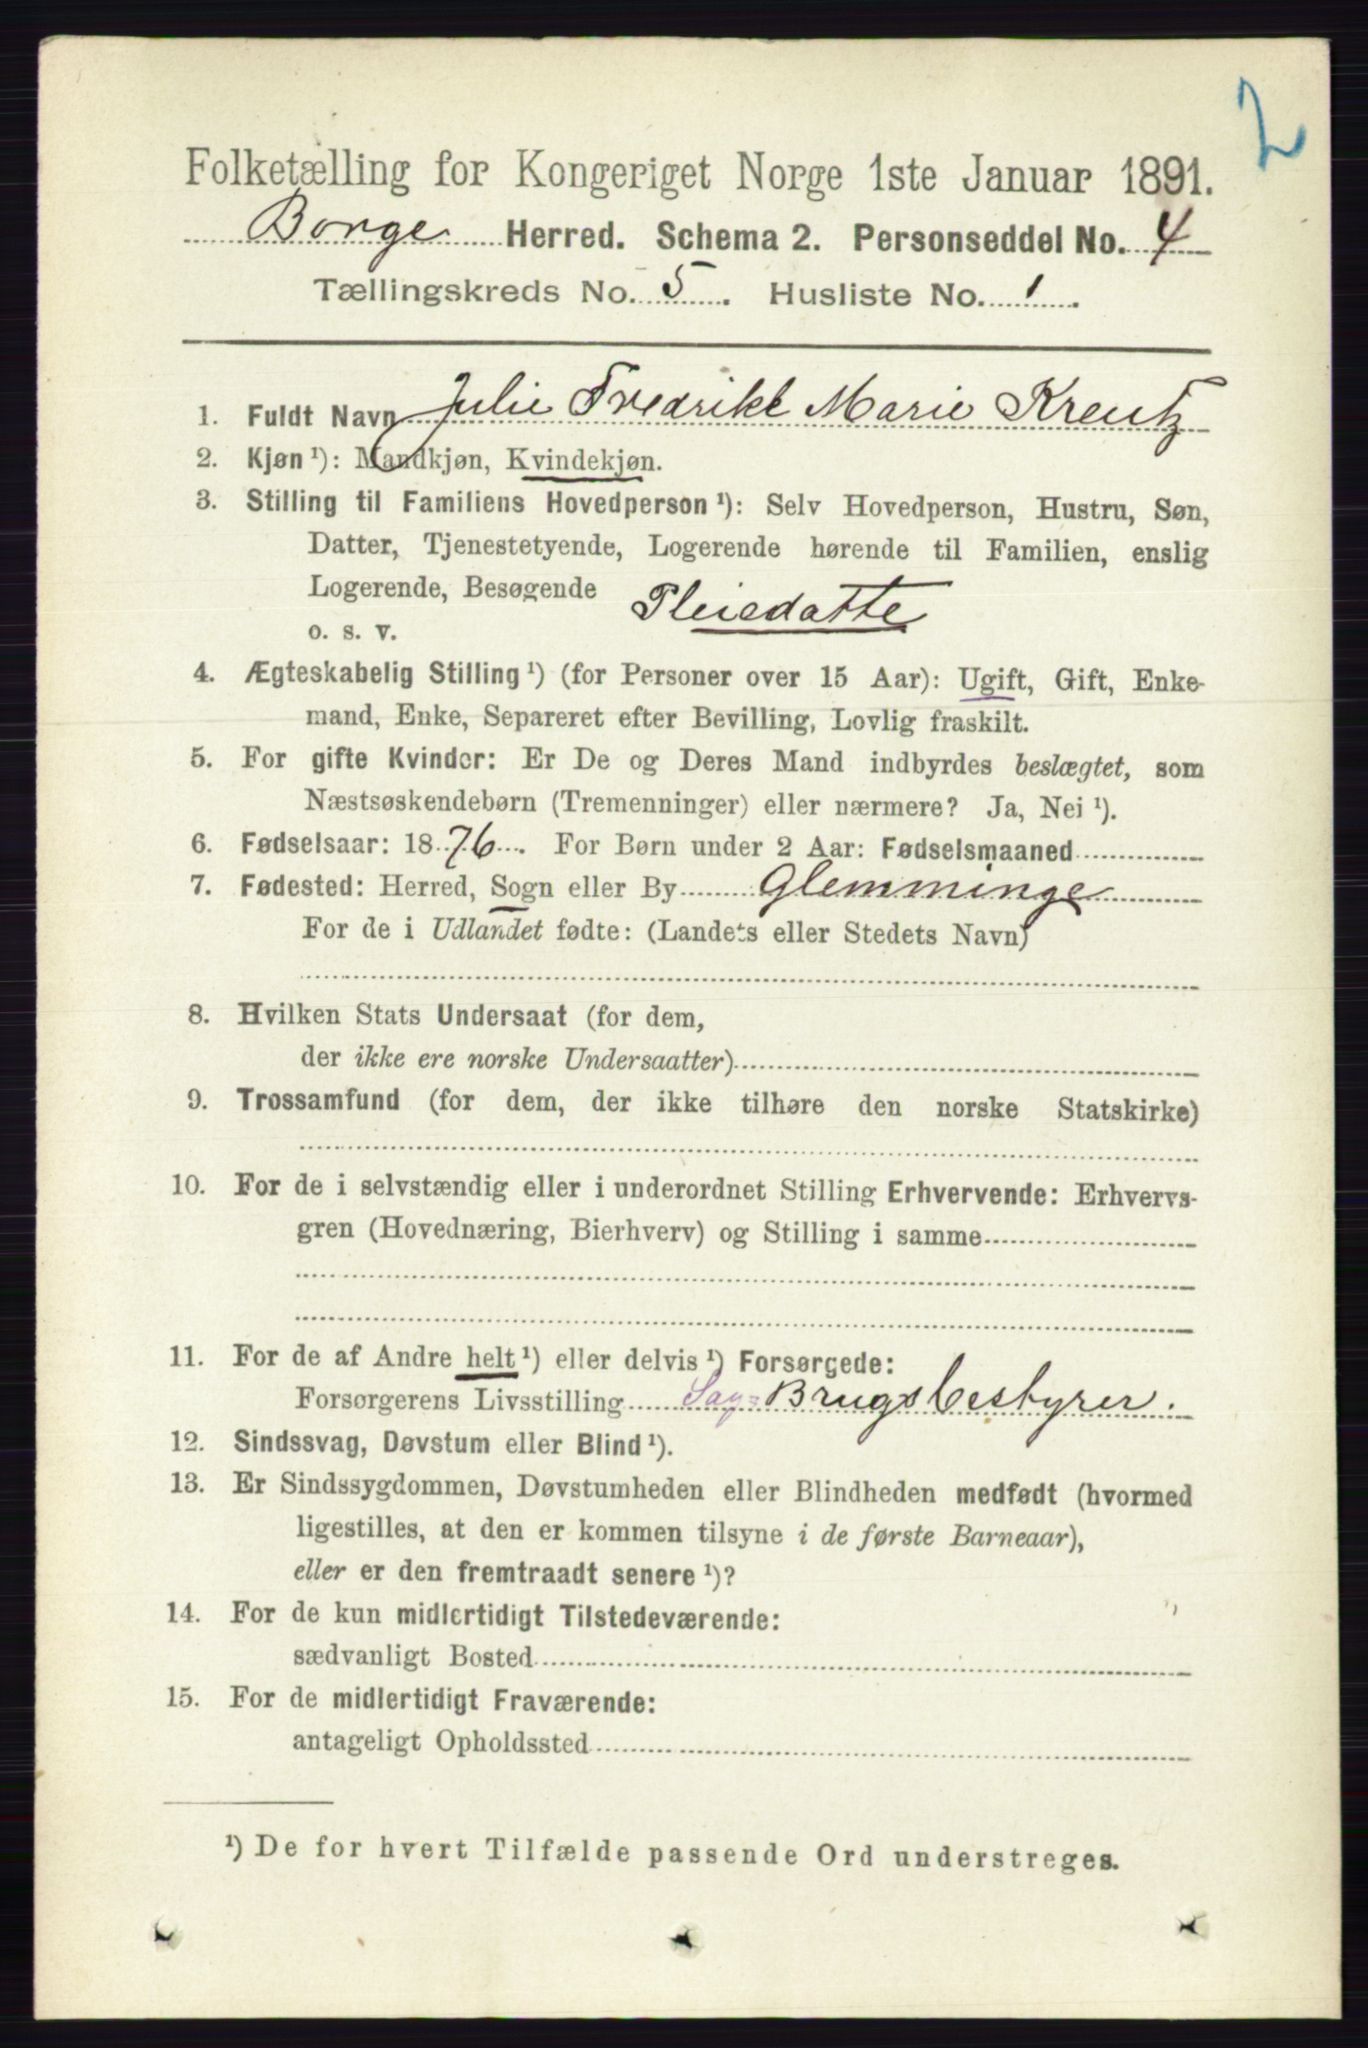 2
Folketælling for Kongeriget Norge 1ste Januar 1891.
Borge Herred. Schema 2. Personseddel No. 4
Tællingskreds No. 5. Husliste No. 1.
1. Fuldt Navn Julie Fredrikke Marie Kreutz
2. Kjøn ¹): Mandkjøn, Kvindekjøn.
3. Stilling til Familiens Hovedperson ¹): Selv Hovedperson, Hustru, Søn,
Datter, Tjenestetyende, Logerende hørende til Familien, enslig
Logerende, Besøgende Pleiedatte
o. s. v.
4. Ægteskabelig Stilling ¹) (for Personer over 15 Aar): Ugift, Gift, Enke-
mand, Enke, Separeret efter Bevilling, Lovlig fraskilt.
5. For gifte Kvinder: Er De og Deres Mand indbyrdes beslægtet, som
Næstsøskendebørn (Tremenninger) eller nærmere? Ja, Nei ¹).
6. Fødselsaar: 1876. For Børn under 2 Aar: Fødselsmaaned
7. Fødested: Herred, Sogn eller By Glemminge
For de i Udlandet fødte: (Landets eller Stedets Navn)
8. Hvilken Stats Undersaat (for dem,
der ikke ere norske Undersaatter)
9. Trossamfund (for dem, der ikke tilhøre den norske Statskirke)
10. For de i selvstændig eller i underordnet Stilling Erhvervende: Erhvervs-
gren (Hovednæring, Bierhverv) og Stilling i samme
11. For de af Andre helt ¹) eller delvis ¹) Forsørgede:
Forsørgerens Livsstilling Sag= Brugsbestyrer.
12. Sindssvag, Døvstum eller Blind ¹).
13. Er Sindssygdommen, Døvstumheden eller Blindheden medfødt (hvormed
ligestilles, at den er kommen tilsyne i de første Barneaar),
eller er den fremtraadt senere ¹)?
14. For de kun midlertidigt Tilstedeværende:
sædvanligt Bosted
15. For de midlertidigt Fraværende:
antageligt Opholdssted
¹) De for hvert Tilfælde passende Ord understreges.